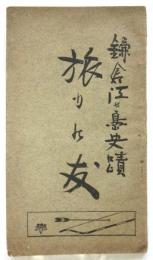 鎌倉江の島史蹟
旅の友